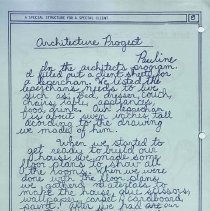 A SPECIAL STRUCTURE FOR A SPECIAL CLIENT
Architecture Progect
Pauline
In the architects program
I filled out a client sheet for
a leperchan. We listed the
leperchans needs to live
such as, bed, dresser, couch,
chairs, table, appliances,
food, drink. Our leperchan
is about seven inches tall
according to the drawing
we made of him.
When we started to
get ready to build our
house we made some
floor plans to show all
the rooms. When we were
done with the floor plans
we gathered materials to
make the house, glue, scissors,
wallpaper, carpet, cardboard
paint! After we had our